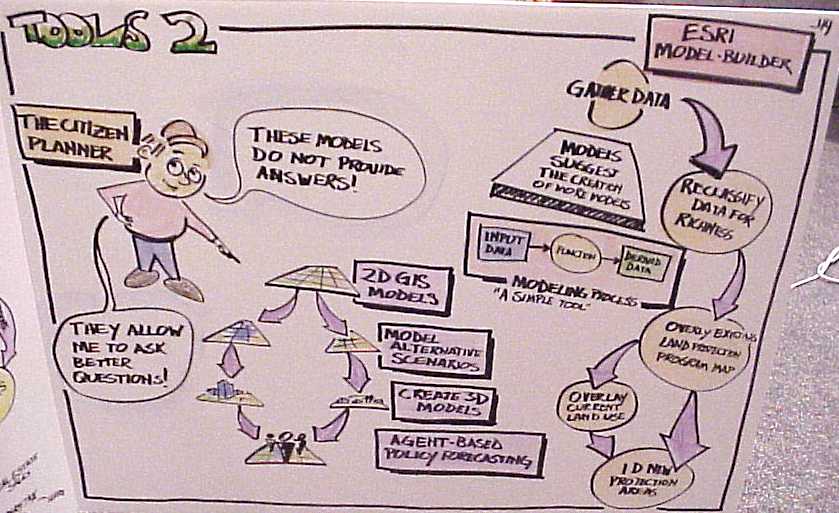 TOOLS 2
ESRI
MODEL-BUILDER
THE CITIZEN
PLANNER
THESE MODELS
DO NOT PROVIDE
ANSWERS!
THEY ALLOW
ME TO ASK
BETTER
QUESTIONS!
2D GIS
MODELS
MODEL
ALTERNATIVE
SCENARIOS
CREATE 3D
MODELS
AGENT-BASED
POLICY FORECASTING
GATHER DATA
MODELS
SUGGEST
THE CREATION
OF MORE MODELS
RECLASSIFY
DATA FOR
RICHNESS
INPUT
DATA
FUNCTION
DERIVED
DATA
MODELING PROCESS
"A SIMPLE TOOL"
OVERLY EXISTING
LAND PROTECTION
PROGRAM MAP
OVERLAY
CURRENT
LAND USE
ID NEW
PROTECTION
AREAS